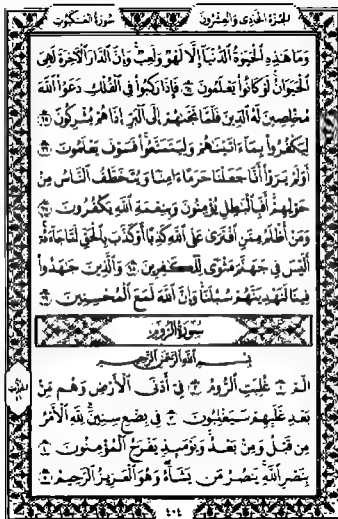 الجزء الحادي والعشرون سورة العنكبوت
وَمَا هَٰذِهِ ٱلْحَيَوٰةُ ٱلدُّنْيَآ إِلَّا لَهْوٌ وَلَعِبٌ وَإِنَّ ٱلدَّارَ ٱلْأَخِرَةَ لَهِىَ
ٱلْحَيَوَانُ لَوْ كَانُوا۟ يَعْلَمُونَ ٦٤ فَإِذَا رَكِبُوا۟ فِى ٱلْفُلْكِ دَعَوُا۟ ٱللَّهَ
مُخْلِصِينَ لَهُ ٱلدِّينَ فَلَمَّا نَجَّىٰهُمْ إِلَى ٱلْبَرِّ إِذَا هُمْ يُشْرِكُونَ ٦٥
لِيَكْفُرُوا۟ بِمَآ ءَاتَيْنَٰهُمْ وَلِيَتَمَتَّعُوا۟ فَسَوْفَ يَعْلَمُونَ ٦٦
أَوَلَمْ يَرَوْا۟ أَنَّا جَعَلْنَا حَرَمًا ءَامِنًا وَيُتَخَطَّفُ ٱلنَّاسُ مِنْ
حَوْلِهِمْ أَفَبِٱلْبَٰطِلِ يُؤْمِنُونَ وَبِنِعْمَةِ ٱللَّهِ يَكْفُرُونَ ٦٧
وَمَنْ أَظْلَمُ مِمَّنِ ٱفْتَرَىٰ عَلَى ٱللَّهِ كَذِبًا أَوْ كَذَّبَ بِٱلْحَقِّ لَمَّا جَآءَهُۥٓ
أَلَيْسَ فِى جَهَنَّمَ مَثْوًى لِّلْكَٰفِرِينَ ٦٨ وَٱلَّذِينَ جَٰهَدُوا۟
فِينَا لَنَهْدِيَنَّهُمْ سُبُلَنَا وَإِنَّ ٱللَّهَ لَمَعَ ٱلْمُحْسِنِينَ ٦٩
سورة الروم
بِسْمِ ٱللَّهِ ٱلرَّحْمَٰنِ ٱلرَّحِيمِ
الٓمٓ ١ غُلِبَتِ ٱلرُّومُ ٢ فِىٓ أَدْنَى ٱلْأَرْضِ وَهُم مِّنۢ
بَعْدِ غَلَبِهِمْ سَيَغْلِبُونَ ٣ فِى بِضْعِ سِنِينَ لِلَّهِ ٱلْأَمْرُ
مِن قَبْلُ وَمِنۢ بَعْدُ وَيَوْمَئِذٍ يَفْرَحُ ٱلْمُؤْمِنُونَ ٤
بِنَصْرِ ٱللَّهِ يَنصُرُ مَن يَشَآءُ وَهُوَ ٱلْعَزِيزُ ٱلرَّحِيمُ ٥
٤٠٤